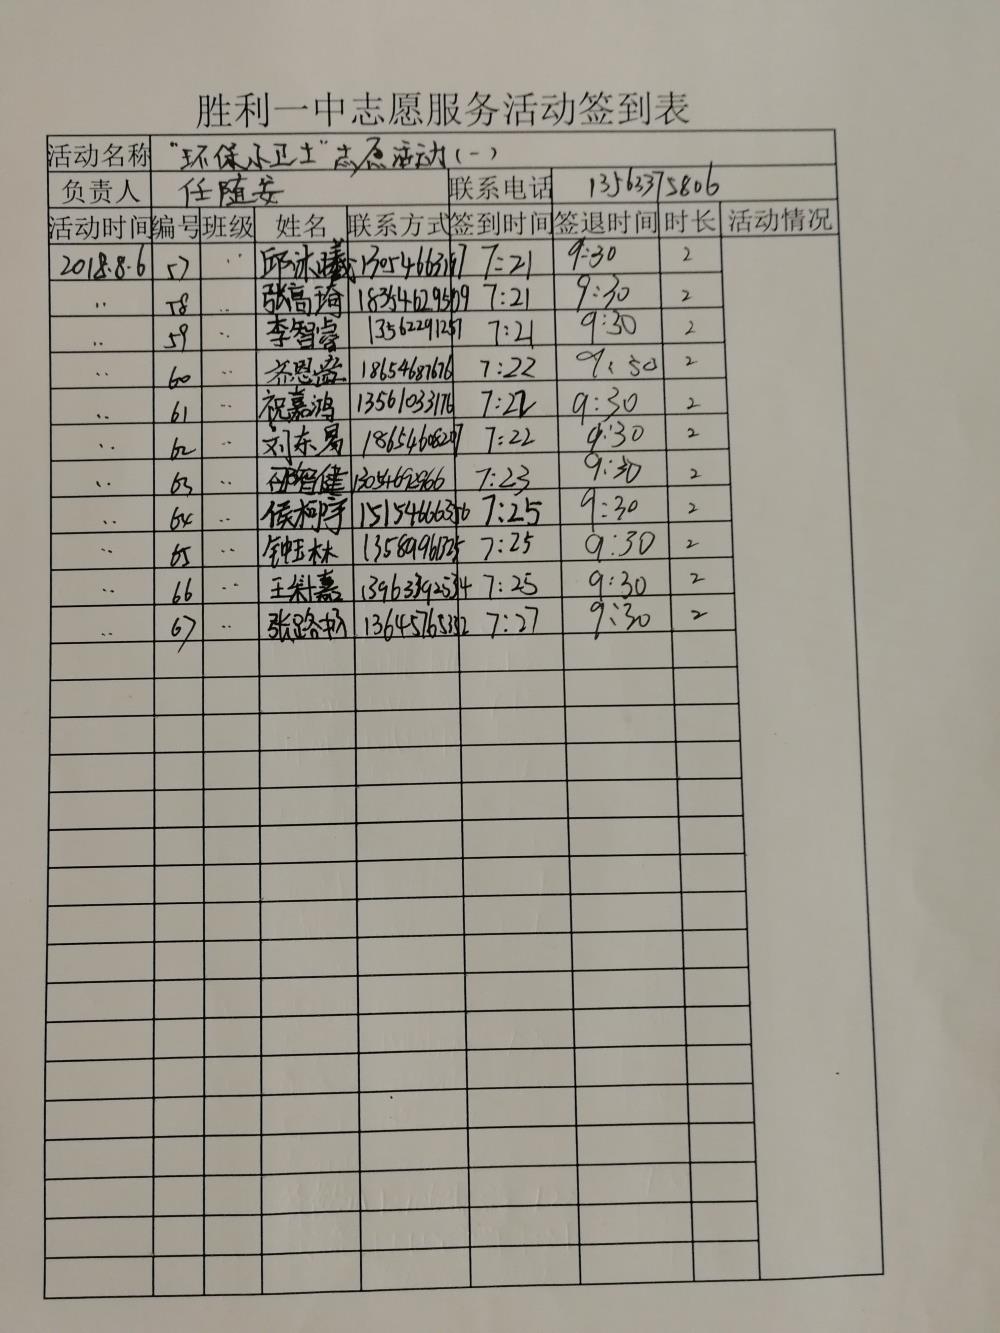 胜利一中志愿服务活动签到表
活动名称 "环保小卫士"志愿活动(一)
负责人 任随安 联系电话 13563375806
活动时间 编号 班级 姓名 联系方式 签到时间 签退时间 时长 活动情况
2018.8.6 57 〃 邱冰曦 7:21 9:30 2
〃 58 〃 张高琦 7:21 9:30 2
〃 59 〃 李智睿 13562291257 7:21 9:30 2
〃 60 〃 18654687676 7:22 9:30 2
〃 61 〃 祝嘉鸿 13561033176 7:22 9:30 2
〃 62 〃 刘东易 18654608207 7:22 9:30 2
〃 63 〃 邵智健 7:23 9:30 2
〃 64 〃 侯柯宇 15154666356 7:25 9:30 2
〃 65 〃 钟玉林 13589961325 7:25 9:30 2
〃 66 〃 13963392534 7:25 9:30 2
〃 67 〃 张路畅 13645765332 7:27 9:30 2